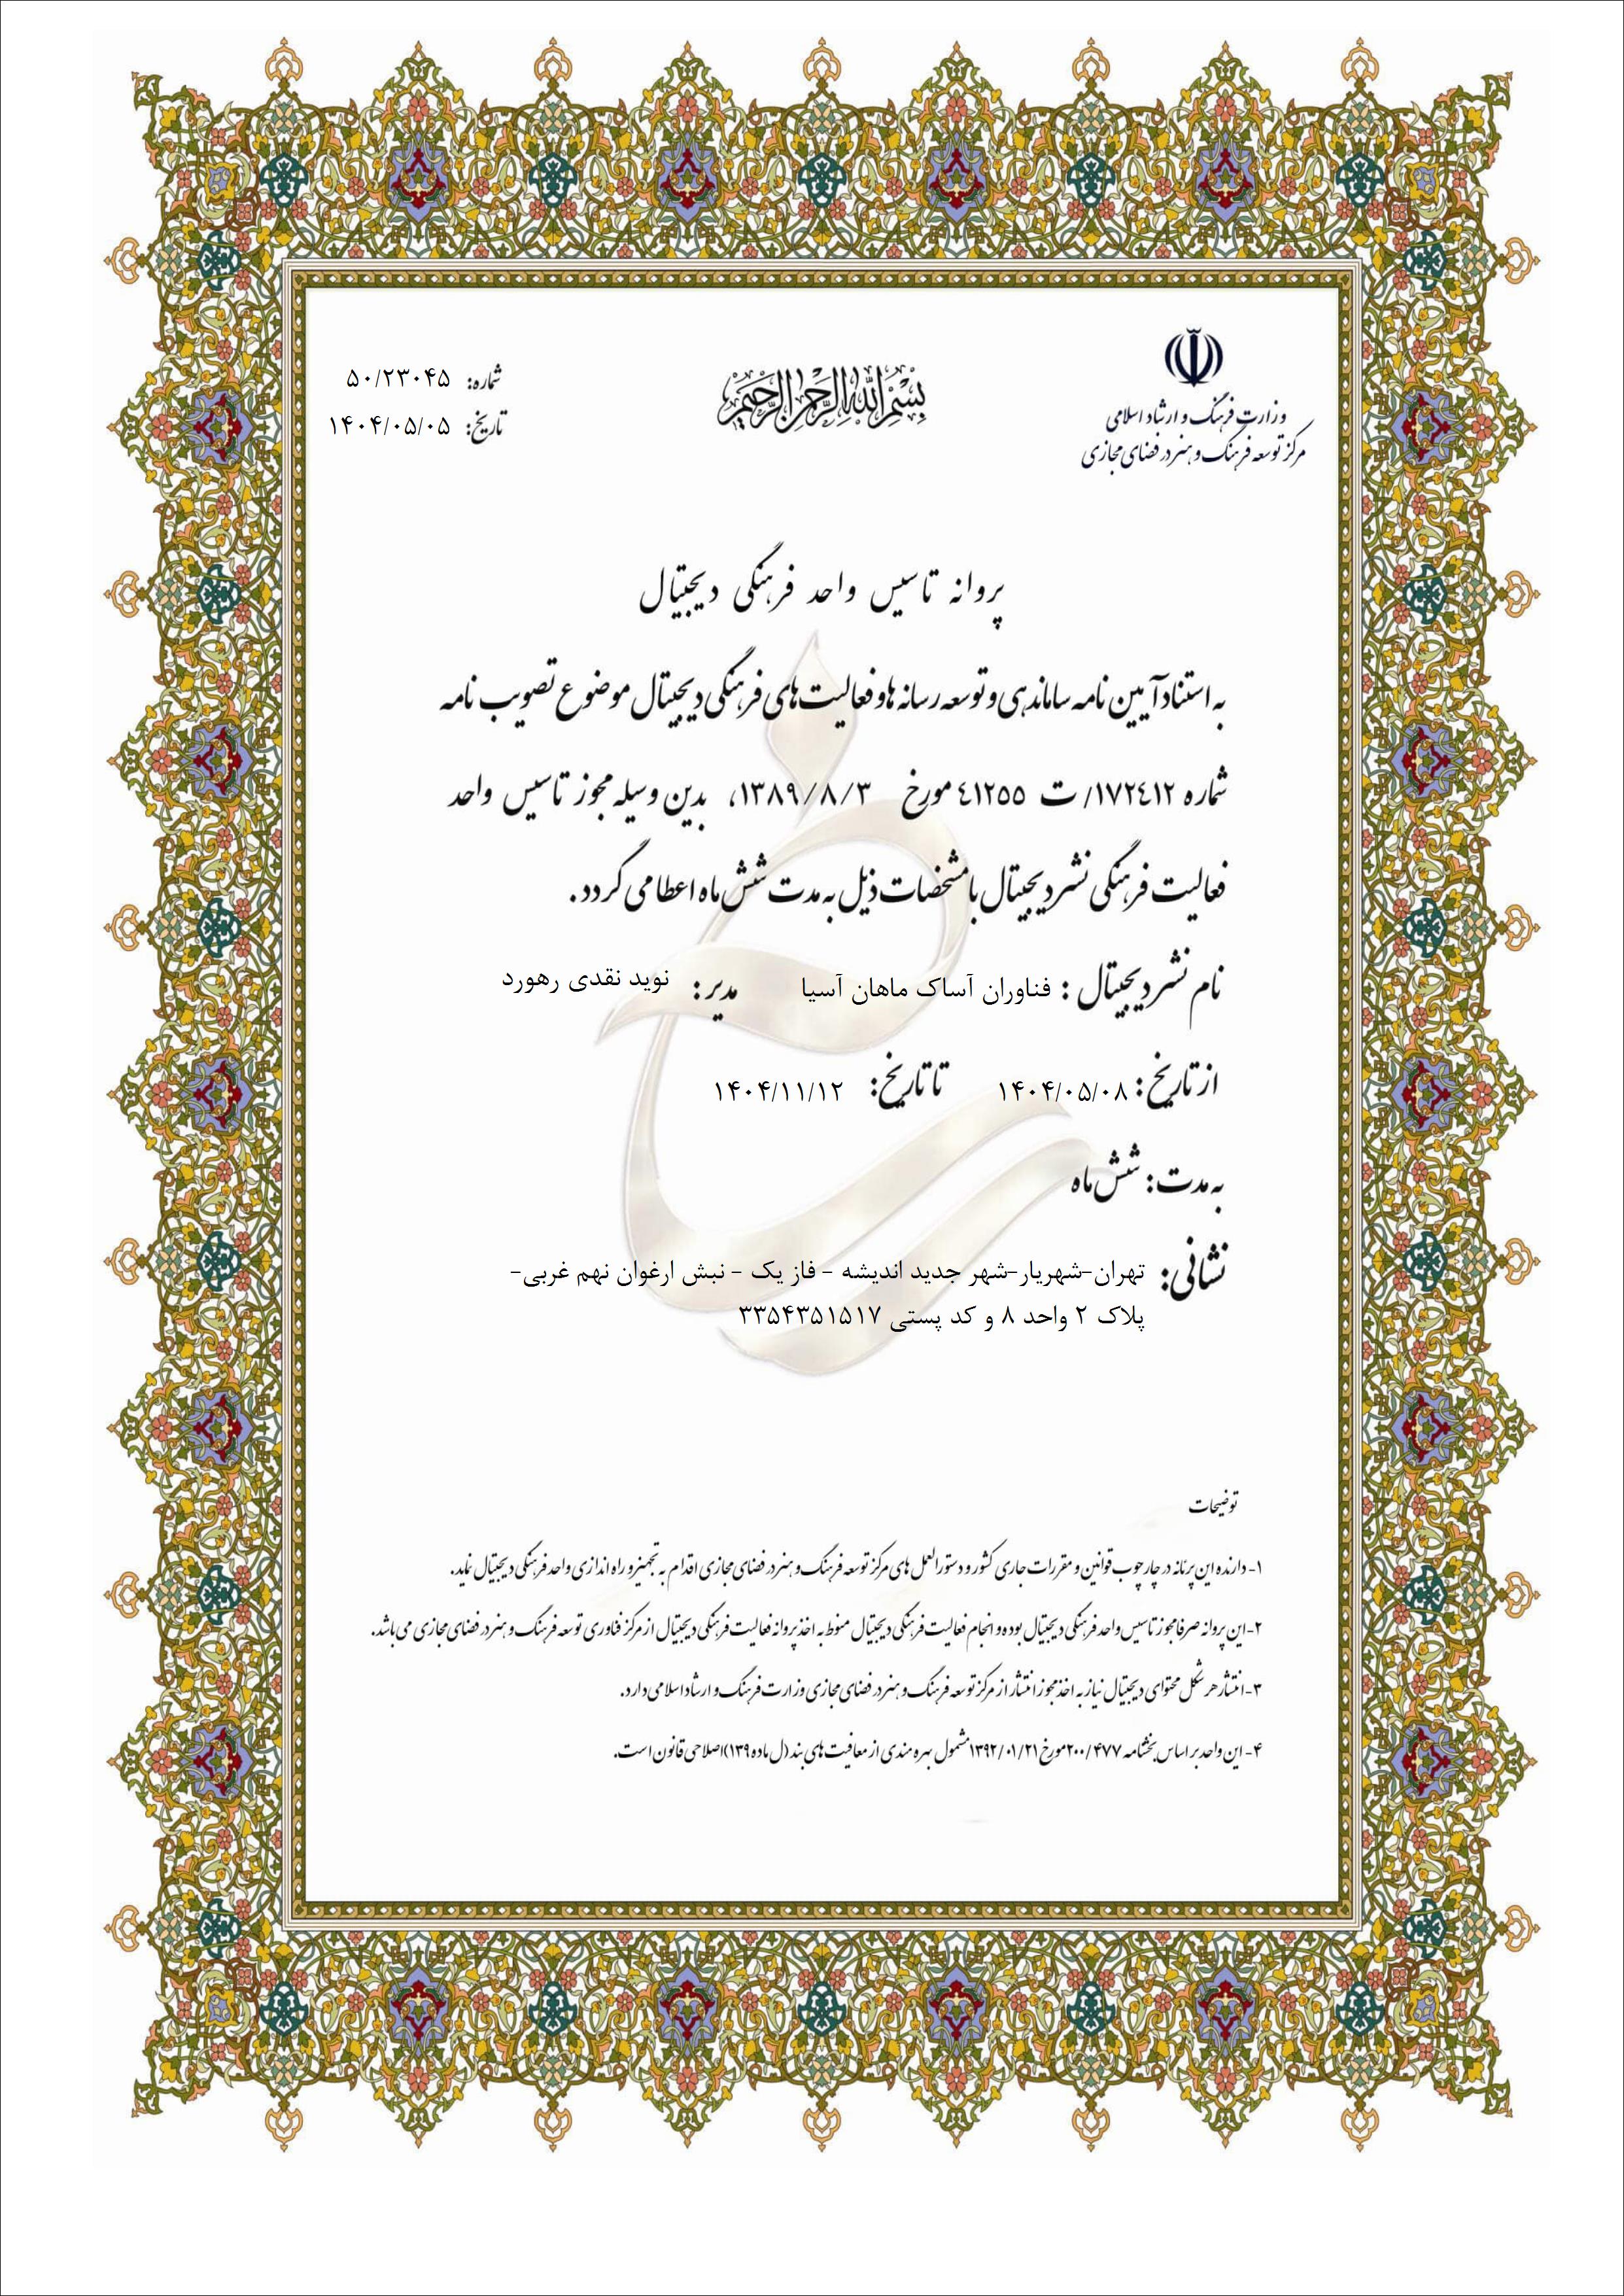 بسم الله الرحمن الرحیم
وزارت فرهنگ و ارشاد اسلامی
مرکز توسعه فرهنگ و هنر در فضای مجازی
شماره: ۵۰/۲۳۰۴۵
تاریخ: ۱۴۰۴/۰۵/۰۵
پروانه تاسیس واحد فرهنگی دیجیتال
به استناد آیین نامه ساماندهی و توسعه رسانه ها و فعالیت های فرهنگی دیجیتال موضوع تصویب نامه
شماره ۱۷۲٤۱۲/ ت ٤۱۲۵۵ مورخ ۱۳۸۹/۸/۳، بدین وسیله مجوز تاسیس واحد
فعالیت فرهنگی نشر دیجیتال با مشخضات ذیل به مدت شش ماه اعطا می گردد.
نام نشر دیجیتال : فناوران آساک ماهان آسیا مدیر: نوید نقدی رهورد
از تاریخ: ۱۴۰۴/۰۵/۰۸ تا تاریخ: ۱۴۰۴/۱۱/۱۲
به مدت: شش ماه
نشانی: تهران-شهریار-شهر جدید اندیشه - فاز یک - نبش ارغوان نهم غربی-
پلاک ۲ واحد ۸ و کد پستی ۳۳۵۴۳۵۱۵۱۷
توضیحات
۱- دارنده این پرمانه در چارچوب قوانین و مقررات جاری کشور و دستورالعمل های مرکز توسعه فرهنگ و هنر در فضای مجازی اقدام به تجهیز و راه اندازی واحد فرهنگی دیجیتال نماید.
۲- این پروانه صرفا مجوز تاسیس واحد فرهنگی دیجیتال بوده و انجام فعالیت فرهنگی دیجیتال منوط به اخذ پروانه فعالیت فرهنگی دیجیتال از مرکز فناوری توسعه فرهنگ و هنر در فضای مجازی می باشد.
۳- انتشار هر شکل محتوای دیجیتال نیاز به اخذ مجوز انتشار از مرکز توسعه فرهنگ و هنر در فضای مجازی وزارت فرهنگ و ارشاد اسلامی دارد.
۴- این واحد بر اساس بخشنامه ۲۰۰/۴۷۷ مورخ ۱۳۹۲/۰۱/۲۱ مشمول بهره مندی از معافیت های بند (ل ماده ۱۳۹) اصلاحی قانون است.